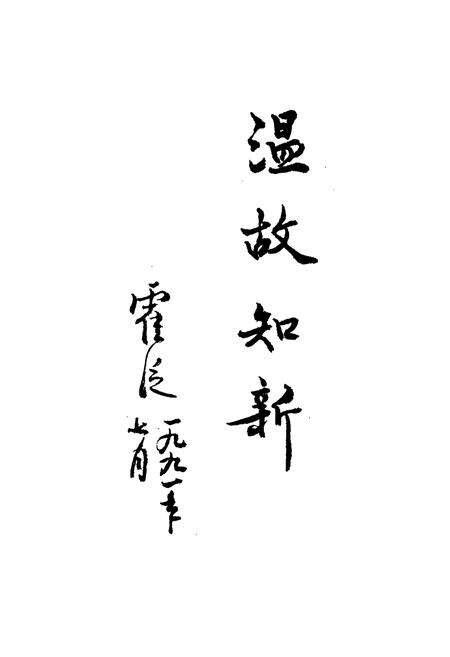 温故知新
霍泛
一九九一年
七月